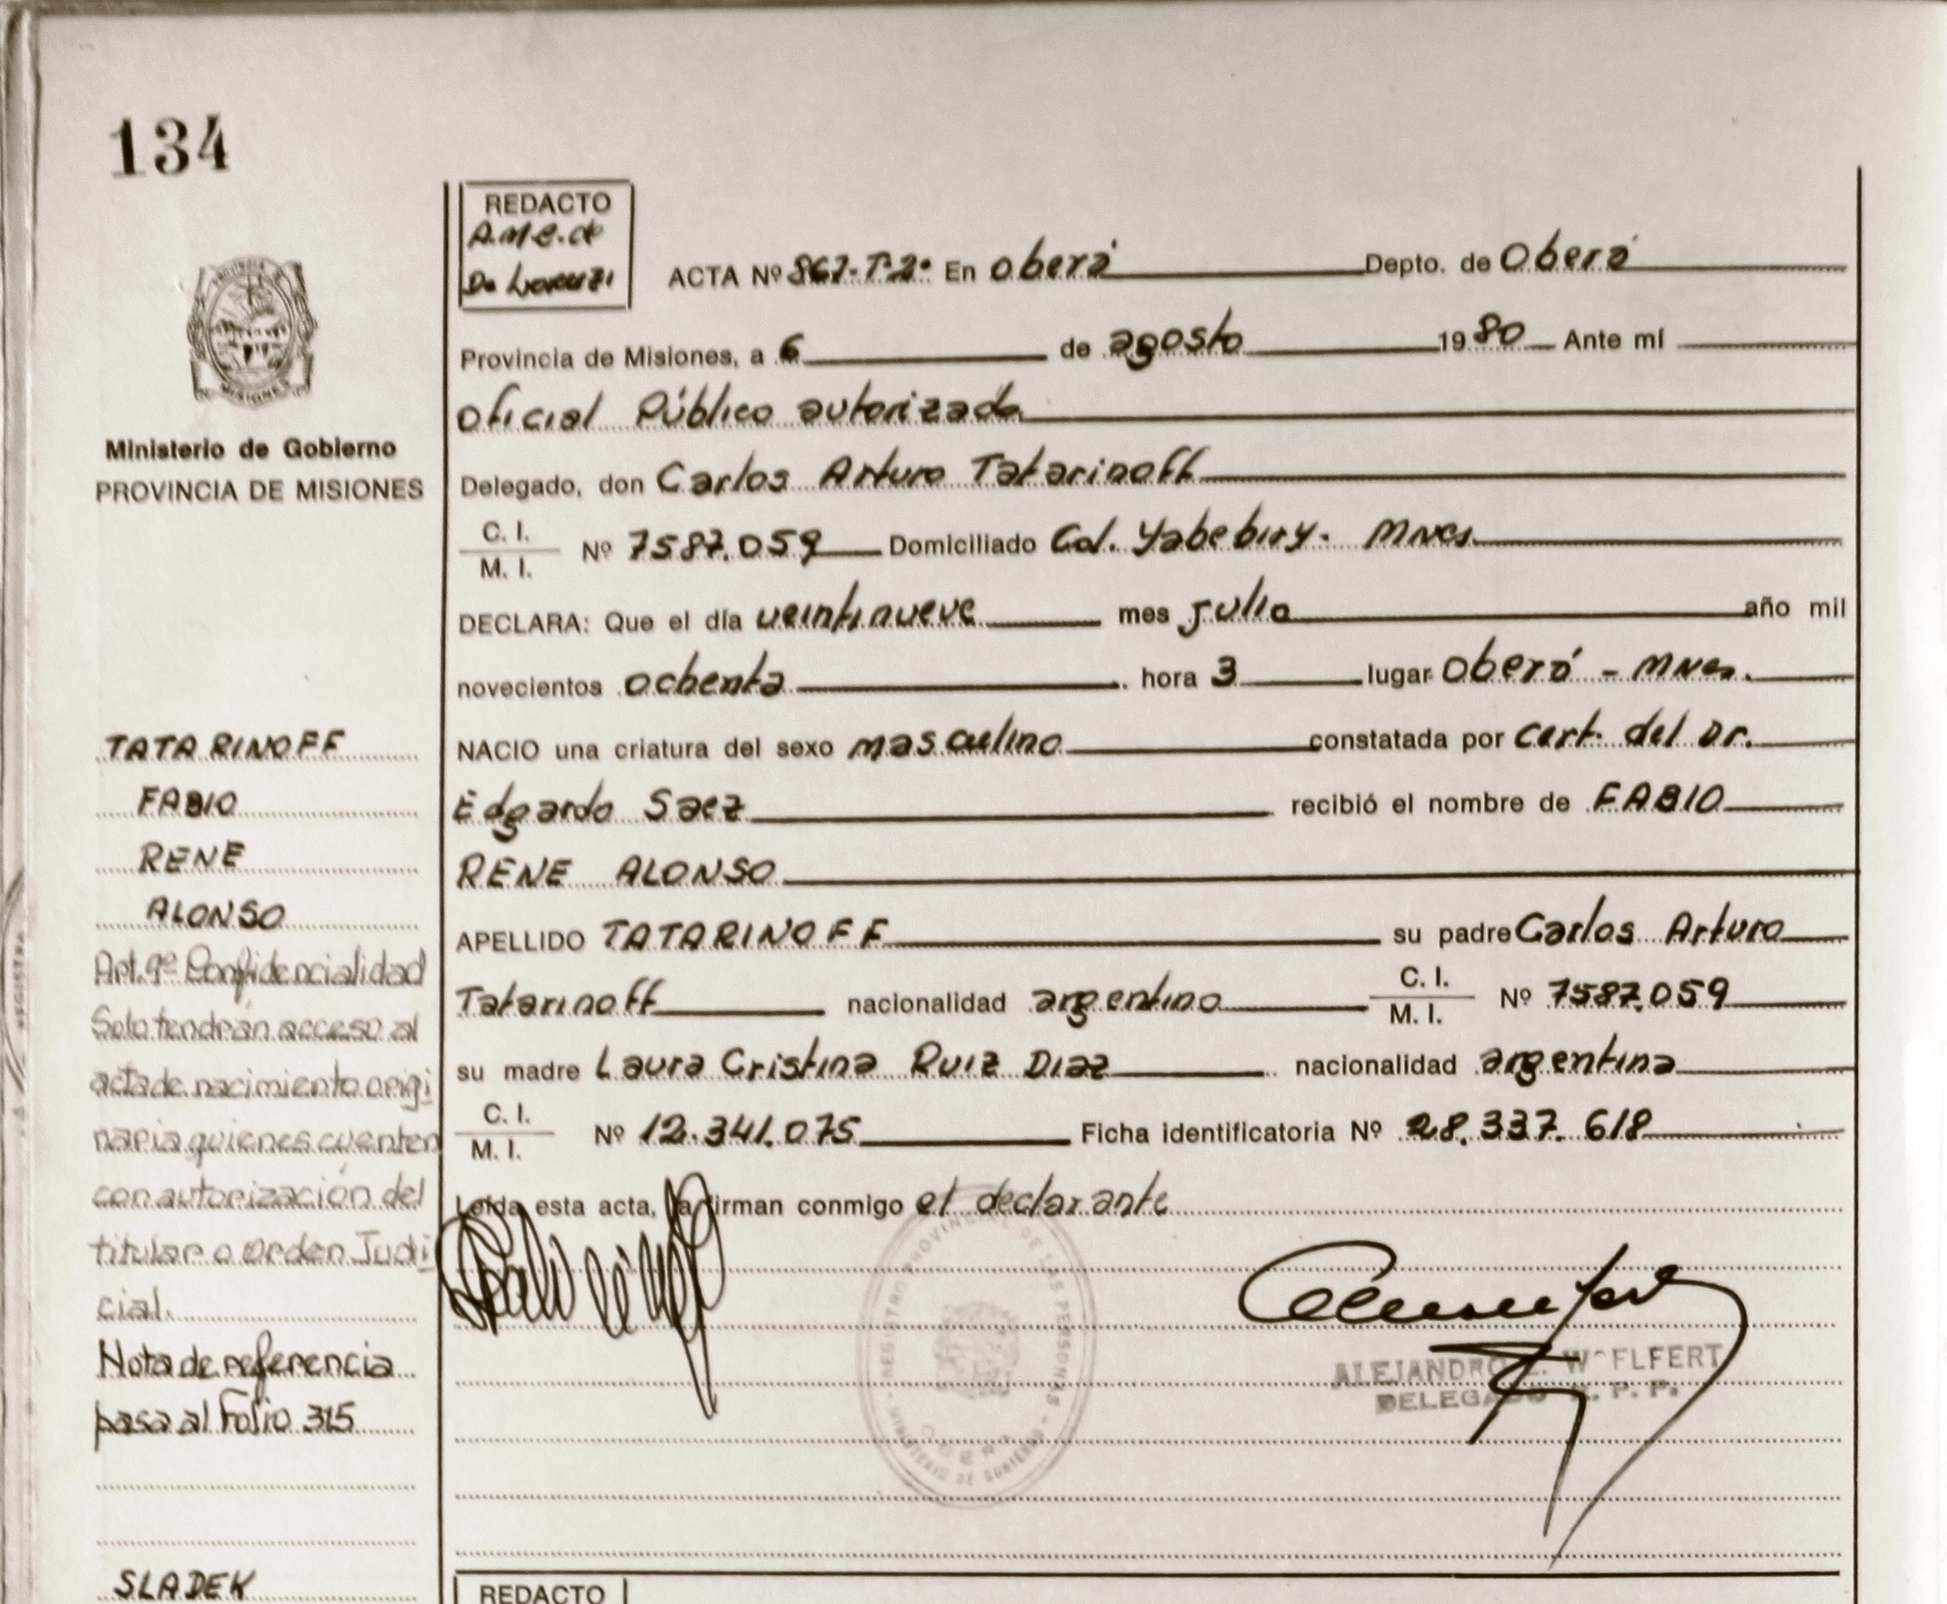 134
REDACTO
A.M.E. de
De Lorenzi
ACTA Nº 867-Tº2º En Oberá Depto. de Oberá
Provincia de Misiones, a 6 de agosto 1980 Ante mí
Oficial Público autorizado
Delegado, don Carlos Arturo Tatarinoff
C. I.
M. I.
Nº 7587.059 Domiciliado Col. Yabebiry. Mnes.
DECLARA: Que el día veintinueve mes julio año mil
novecientos ochenta hora 3 lugar Oberá - Mnes.
NACIO una criatura del sexo masculino constatada por cert. del Dr.
Edgardo Saez recibió el nombre de FABIO
RENE ALONSO
APELLIDO TATARINOFF su padre Carlos Arturo
Tatarinoff nacionalidad argentino C. I. M. I. Nº 7587.059
su madre Laura Cristina Ruiz Diaz nacionalidad argentina
C. I.
M. I.
Nº 12.341.075 Ficha identificatoria Nº 28.337.618
Leída esta acta, la firman conmigo el declarante
ALEJANDRO WOELFERT
DELEGADO R. P. P.
REGISTRO PROVINCIAL DE LAS PERSONAS
MINISTERIO DE GOBIERNO
OBERA
PROVINCIA DE
MISIONES
Ministerio de Gobierno
PROVINCIA DE MISIONES
TATARINOFF
FABIO
RENE
ALONSO
Art. 9º Confidencialidad
Solo tendrán acceso al
acta de nacimiento origi
naria quienes cuenten
con autorización del
titular o Orden Judi
cial.
Nota de referencia
pasa al Folio 315
SLADEK
REDACTO